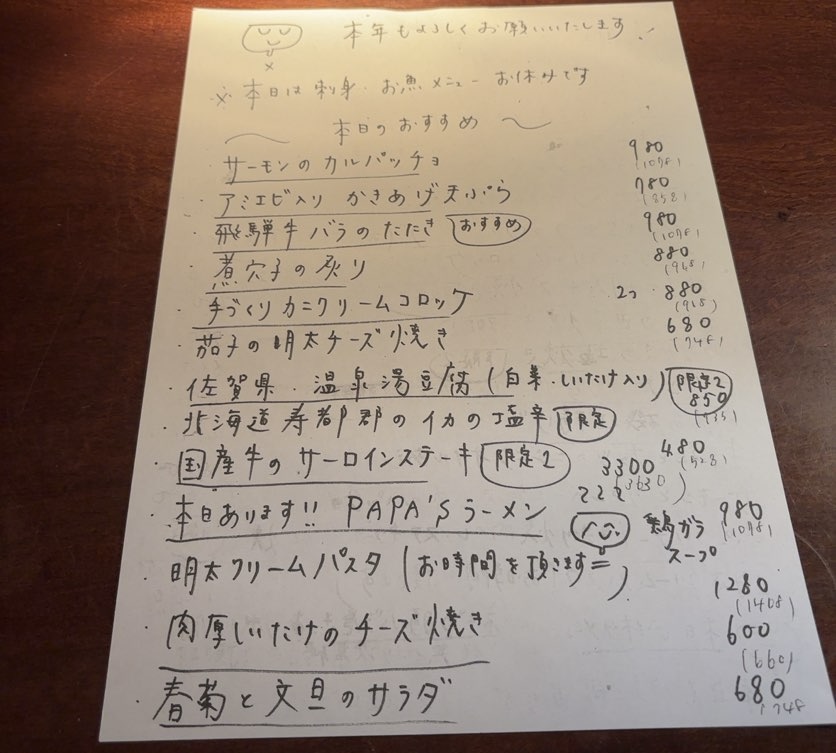 本年もよろしくお願いいたします
※本日は刺身・お魚メニューお休みです
〜 本日のおすすめ 〜
・サーモンのカルパッチョ 980 (1078)
・アミエビ入り かきあげ天ぷら 780 (858)
・飛騨牛バラのたたき おすすめ 980 (1078)
・煮穴子の炙り 880 (968)
・手づくりカニクリームコロッケ 2つ 880 (968)
・茄子の明太チーズ焼き 680 (748)
・佐賀県 温泉湯豆腐 (白菜・しいたけ入り) 限定2 850 (935)
・北海道寿都郡のイカの塩辛 限定 480 (528)
・国産牛のサーロインステーキ 限定2 3300 (3630)
・本日あります!! PAPA'Sラーメン 鶏ガラスープ 980 (1078)
・明太クリームパスタ (お時間を頂きます) 1280 (1408)
・肉厚しいたけのチーズ焼き 600 (660)
・春菊と文旦のサラダ 680 (748